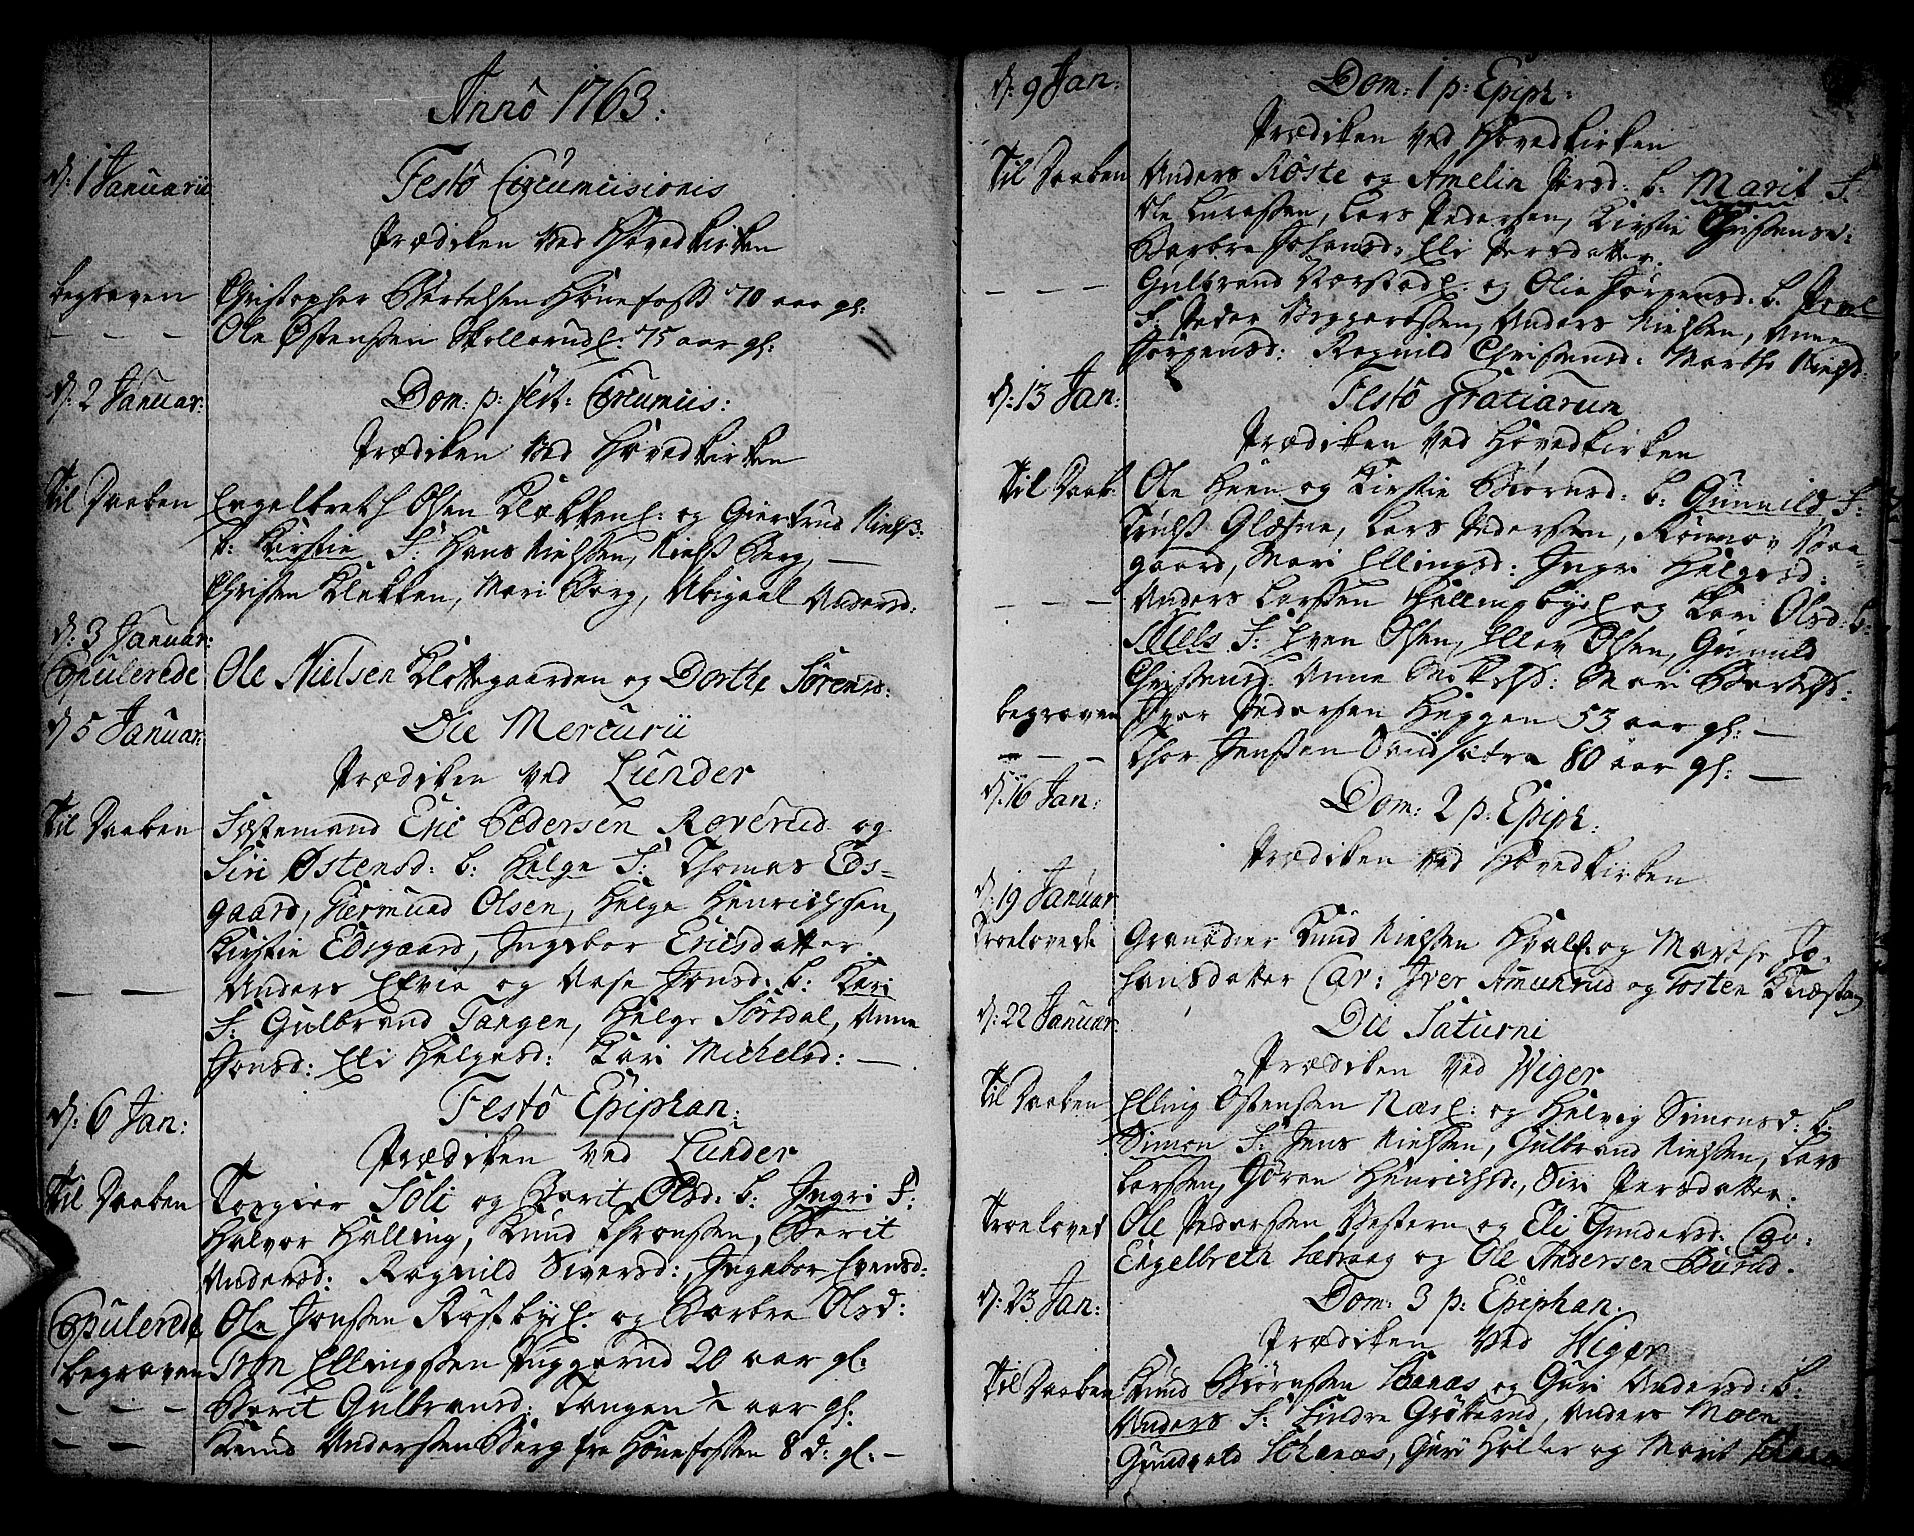 Anno 1763:
d: 1 Januarii
Festo Circumcisionis
Prædiken ved Hovedkirken
begraven Christopher Bertelsen Hønefoss 70 aar gl:
- - - Ole Østensen Skollerud 75 aar gl:
d: 2 Januar:
Dom: p: fest: Circumcis:
Prædiken ved Hovedkirken
Til Daaben Engelbreth Olsen Klækken og Giertrud Niels
b: Kirstie F: Hans Nielsen, Niels Berg, —
Christen Klekken, Mari Berg, Abigael Andersd:
d: 3 Januar:
Copulerede Ole Nielsen og Dorthe Sørensd:
d 5 Januar:
Die Mercurii
Prædiken ved Lunder
Til Daaben Eric Pedersen Roverud og
Siri Østensd: b: Helge F: Thomas Eds-
gaard, Giermund Olsen, Helge Henrichsen,
Kirstie Edsgaard, Ingebor Ericsdatter.
— — Anders Elvie og Aase Jonsd: b: Kari
F: Gulbrand Tangen, Helge Sørdal, Anne
Jonsd: Eli Helgesd: Kari Michelsd: —
d: 6 Jan:
Festo Epiphan:
Prædiken ved Lunder
Til Daaben Torgier Soli og Berit Olsd: b: Ingri F:
Halvor Halling, Knud Thronsen, Berit
Andersd: Ragnild Siversd:, Ingebor Evensd:
Copulerede Ole Jonsen og Barbra Olsd:
begraven Ellingsen 20 aar gl:
- - - Berit Gulbransd: Tangen ½ aar gl:
- - Knud Andersen Berg fra Hønefossen 8 d: gl: -
d: 9 Jan:
Dom: 1 p: Epiph:
Prædiken ved Hovedkirken
Til Daaben Anders Røste og Amelia b: Marit F:
Ole Lucassen, Lars Pedersen, Kirstie Christensd:
Barbra Johansd: Eli Persdatter.
- - - Gulbrand og Olia Jørgensd: b:
F: Peder Anders Nielsen, Anne
Jørgensd: Ragnild Christensd: Marthe Nielsd:
d: 13 Jan:
Festo Gratiarum
Prædiken ved Hovedkirken
Til Daab: Ole Heen og Kirstie Biørnsd: b: Gunnild F:
Truls Glæsne, Lars Pedersen, Rønnov
gaard, Mari Ellingsd: Ingri Helgesd:
- - - Anders Larsen Hallingby og Kari Olsd: b:
Niels F: Even Olsen, Ellev Olsen, Gunnild
Christensd: Anne Mari Bertelsd:
begraven Iver Pedersen Heggen 53 aar gl: —
- - - Thor Jensen 80 aar gl: —
d: 16 Jan:
Dom: 2 p: Epiph:
Prædiken ved Hovedkirken
d: 19 Januar
Troelovede Granadier Knud Nielsen Hval og Marthe Jo-
hansdatter Cav: Iver Amunrud og Tosten
d: 22 Januar
Die Saturni
Prædiken ved Wiger
Til Daaben Elling Østensen og Helvig Simonsd: b:
Simon F: Jens Nielsen, Gulbrand Nielsen, Lars
Larsen, Gøren Henrichsd:, Siri Persdatter.
Troelovet Ole Pedersen Vestern og Eli Gundersd: Cav:
Engelbreth og Ole Andersen Burud.
d: 23 Jan:
Dom: 3 p: Epiphan.
Prædiken ved Wiger
Til Daaben Knud Biørnsen og Guri Andersd: b:
Anders F: Sindre Anders Moen,
Guri Haller og Marit